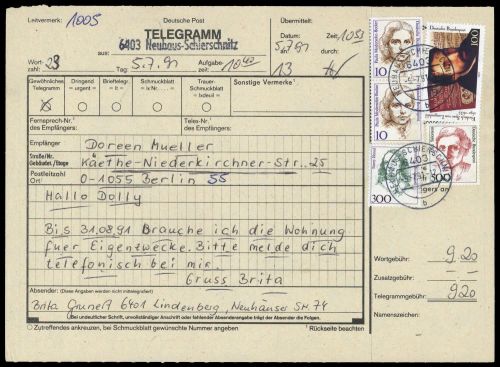 Leitvermerk: 1005
Deutsche Post
TELEGRAMM
aus: 6403 Neuhaus-Schierschnitz
Übermittelt:
Datum: 5.7.91 Zeit: 1053
an: 13 durch:
Wortzahl: 23
Tag: 5.7.91 Aufgabezeit: 1040
Gewöhnliches Telegramm
Dringend = urgent =
Brieftelegr. = lt =
Schmuckblatt = lx Nr. =
Trauer = Schmuckblatt = lxdeuil =
Sonstige Vermerke¹
Fernsprech-Nr.¹ des Empfängers:
Telex-Nr.¹ des Empfängers:
Empfänger Doreen Mueller
Straße/Nr. Gebäudet./Etage Kaethe-Niederkirchner-Str. 25
Postleitzahl Ort O-1055 Berlin 55
Hallo Dolly
Bis 31.08.91 Brauche ich die Wohnung
fuer Eigentzwecke. Bitte melde dich
telefonisch bei mir.
Gruss Brita
Absender: (Diese Angaben werden nicht mittelegrafiert)
Brita Grunert 6401 Lindenberg, Neuhäuser Str. 74
Bei undeutlicher Schrift, unvollständiger Anschrift oder fehlender Absenderangabe trägt der Absender die Folgen.
○ Zutreffendes ankreuzen, bei Schmuckblatt gewünschte Nummer angeben
¹ Rückseite beachten
10
10
300
100
500
6403
5.-7.91
b
Wortgebühr: 9.20
Zusatzgebühr:
Telegrammgebühr: 9.20
Namenszeichen: